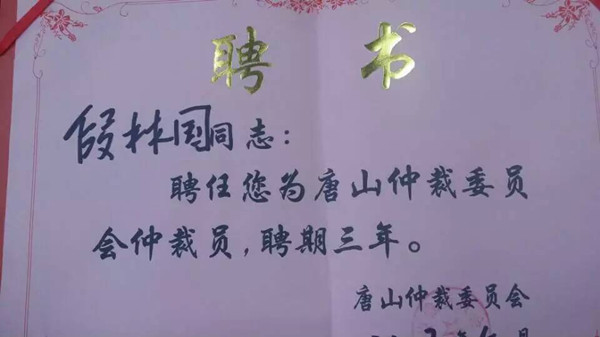 聘书
段林国同志：
聘任您为唐山仲裁委员
会仲裁员，聘期三年。
唐山仲裁委员会